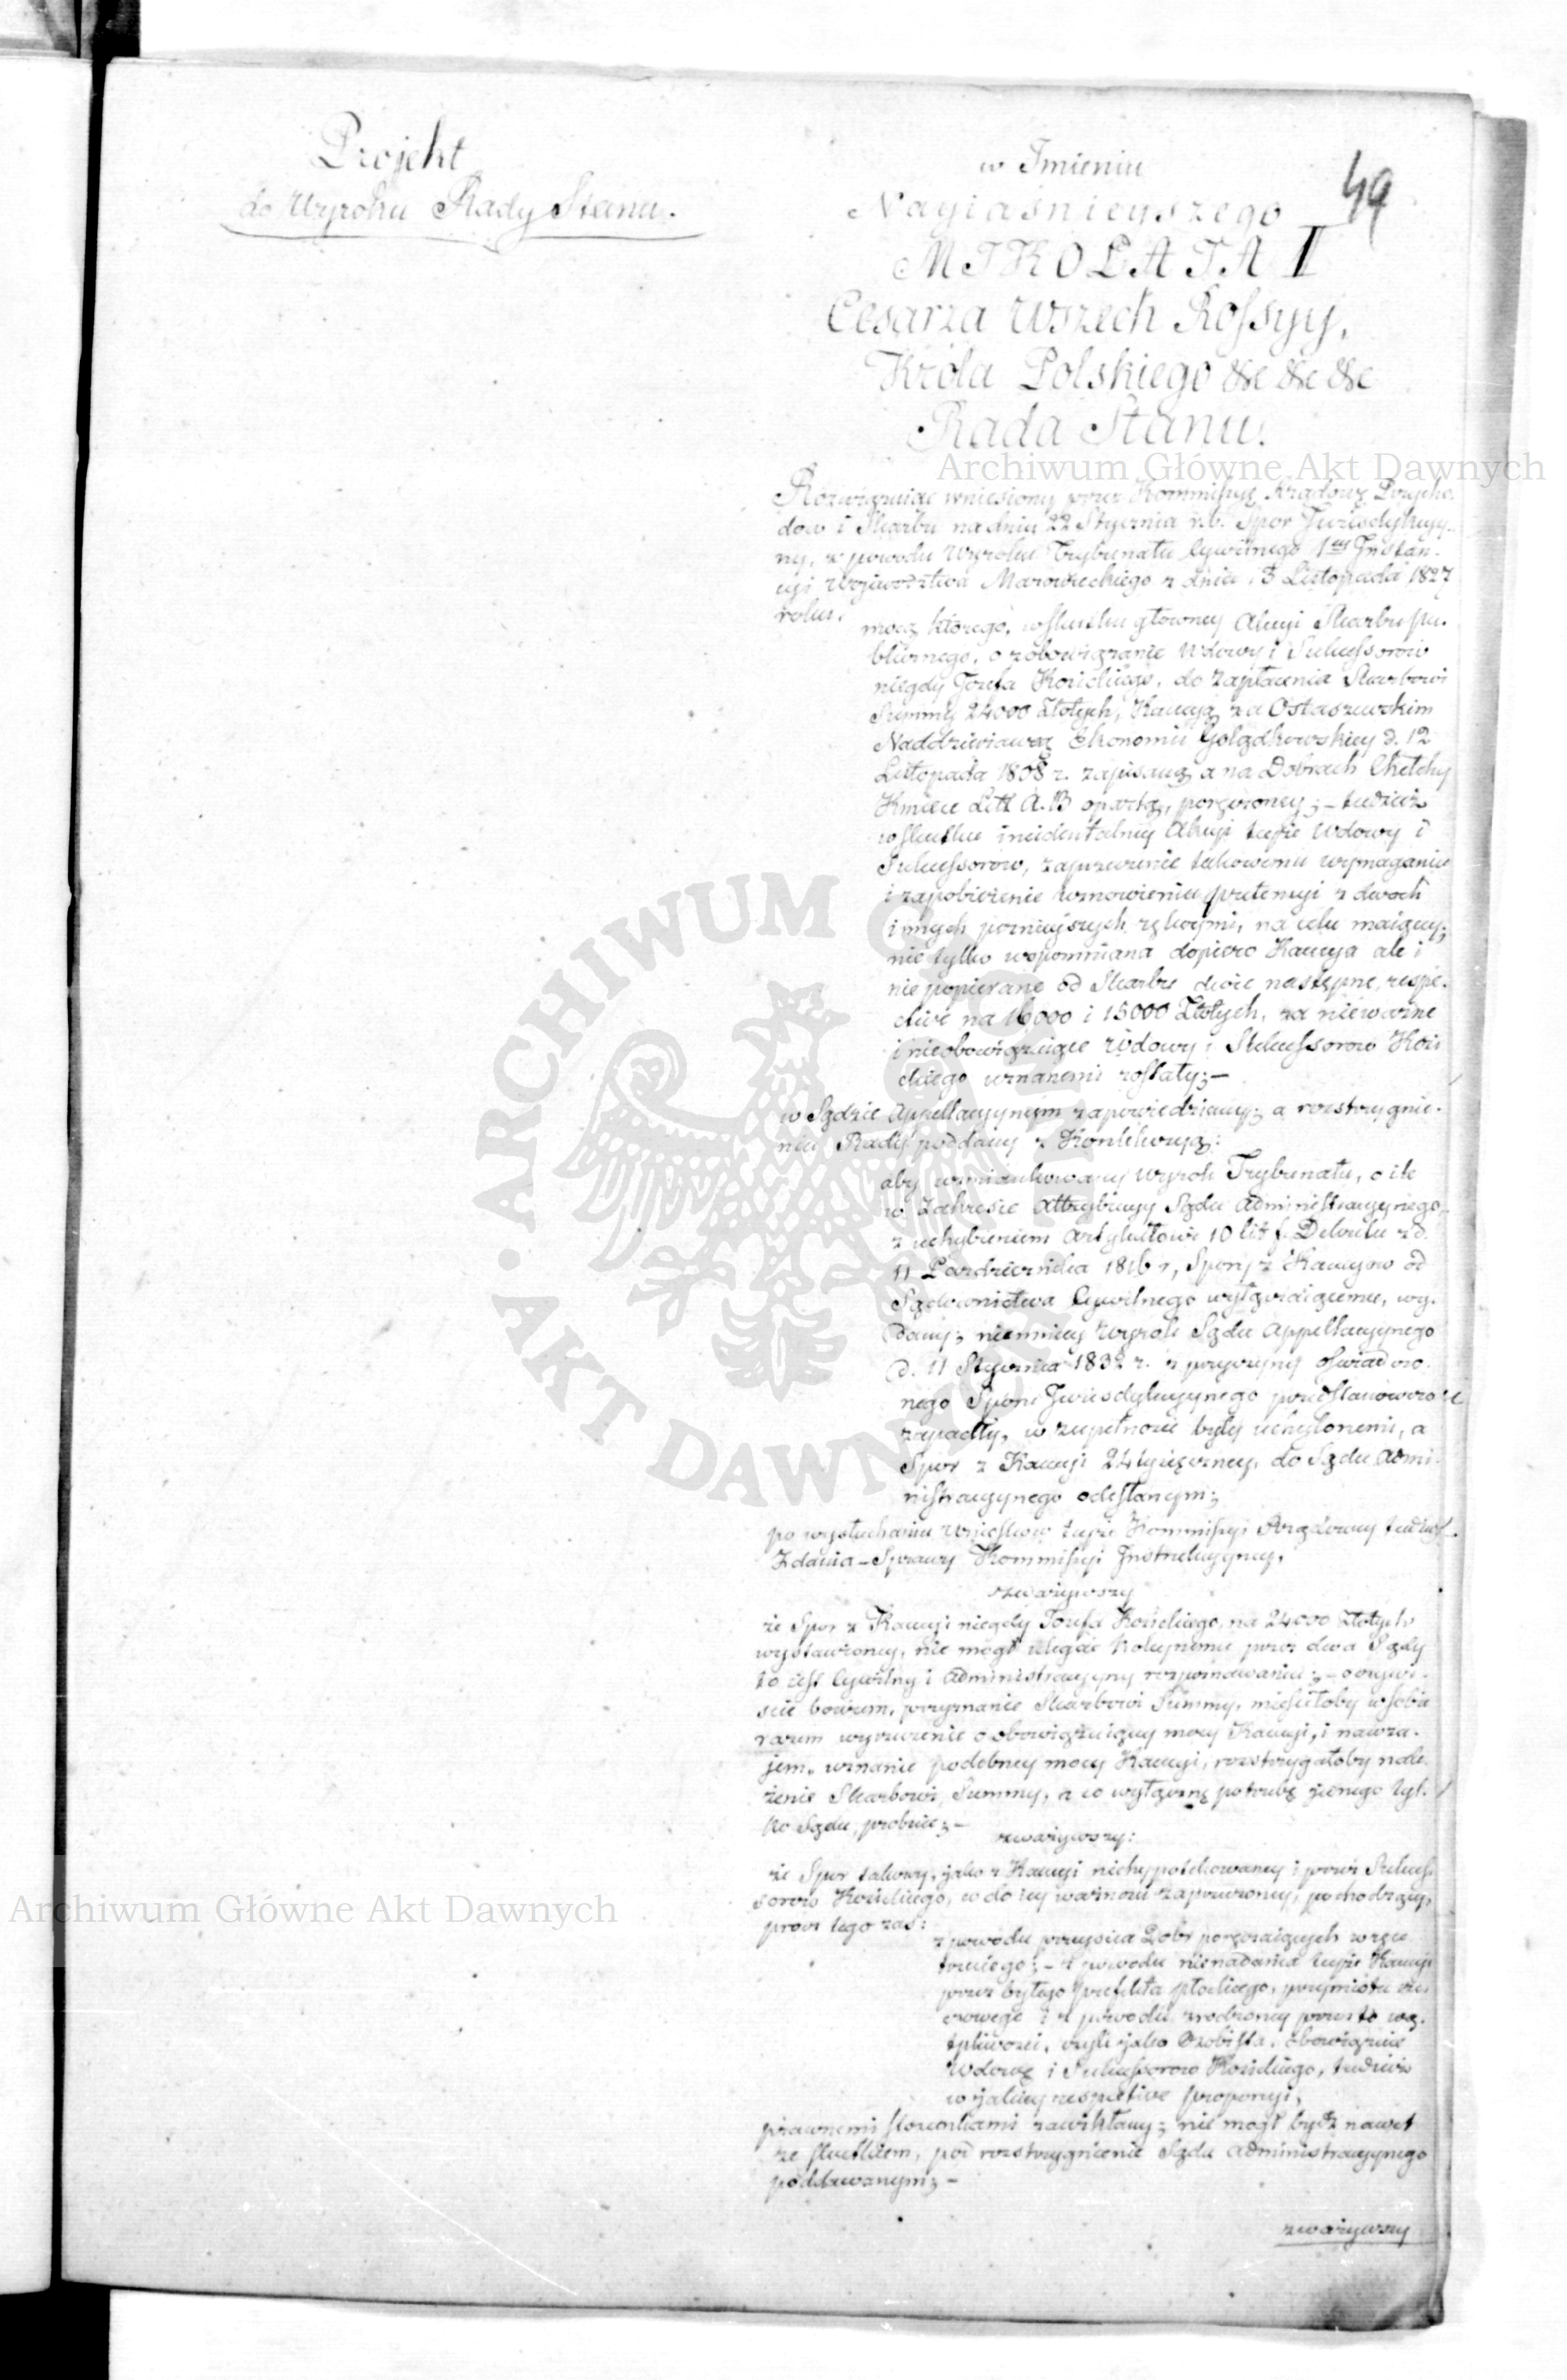 Projekt
do Wyroku Rady Stanu.
49
w Imieniu
Nayiaśnieyszego
MIKOŁAIA I
Cesarza Wszech Rossyy,
Króla Polskiego &c &c &c
Rada Stanu.
Archiwum Główne Akt Dawnych
Rozwiązuiąc wniesiony przez Kommissyę Rządową Przycho-
dow i Skarbu na dniu 22 Stycznia r.b. Spor Jurisdykcyy-
ny, z powodu Wyroku Trybunału Cywilnego 1ey Instan-
cyi Wojewodztwa Mazowieckiego z dnia 3 Listopada 1827
roku.
mocą którego, w skutku głowney Akcyi Skarbu pu-
blicznego, o zobowiązanie Wdowy i Sukcessorów
niegdy Jozefa Kościckiego, do zapłacenia Skarbowi
Summy 24000 Złotych, Kaucyą za Ostaszewskim
Naddzierżawcą Ekonomii Golądkowskiey d. 12
Listopada 1808 r. zapisaną a na Dobrach Chełchy
Kmiece Litt A.B opartą, poręczoney; – tudzież
w skutku incidentalney Akcyi teyże Wdowy i
Sukcessorow, zaprzeczenie takowemu wymaganiu
i zapobieżenie wznowieniu pretensyi z dwoch
innych poznieyszych rękoymi, na celu maiącey,
nie tylko wspomniana dopiero Kaucya ale i
nie popierane od Skarbu dwie następne, respe-
ctive na 16000 i 15000 Złotych, za nieważne
i nieobowiązuiące Wdowy i Sukcessorow Kości-
ckiego uznanemi zostały; –
w Sądzie Appellacyynym zapowiedziany, a rozstrzygnie-
niu Rady poddany z Konkluzyą:
aby wzmiankowany Wyrok Trybunału, o ile
w Zakresie Attrybucyy Sądu Administracyynego,
z uchybieniem Artykułowi 10 lit f. Dekretu z d.
11 Pazdziernika 1816 r, Spory z Kaucyow od
Sądownictwa Cywilnego wyłączaiącemu, wy-
dany; niemniey Wyrok Sądu Appellacyynego
d. 11 Stycznia 1832 r. z przyczyny oświadczo-
nego Sporu Jurisdykcyynego przedstanowczo
zapadły, w zupełności były uchylonemi, a
Spor z Kaucyi 24 tysięczney, do Sądu Admi-
nistracyynego odesłanym;
po wysłuchaniu Wnioskow teyże Kommissyi Rządowey tudzież
Zdania-Sprawy Kommissyi Instrukcyyney,
zważywszy
że Spor z Kaucyi niegdy Jozefa Kościckiego, na 24000 Złotych
wystawioney, nie mogł ulegać kolejnemu przez dwa Sądy
to iest Cywilny i Administracyyny rozpoznawaniu; – oczywi-
scie bowiem, przyznanie Skarbowi Summy, mieściłoby w sobie
razem wyrzeczenie o obowiązuiącey mocy Kaucyi, i nawza-
jem, uznanie podobney mocy Kaucyi, rozstrzygałoby nale-
żenie Skarbowi Summy, a co wyłączną potrzebę jednego tyl-
ko Sądu, probuie; –
zważywszy:
że Spor takowy, jako z Kaucyi niehypotekowaney i przez Sukces-
sorow Kościckiego, co do iey ważności zaprzeczoney, pochodzący,
procz tego zaś:
z powodu przeyscia Dobr poręczaiących w ręce
trzeciego; – z powodu nienadania teyże Kaucyi
przez byłego Prefekta płockiego, przymiotu
i z powodu zrodzoney przez to wą-
tpliwości, czyli jako Osobista, obowiązuie
Wdowę i Sukcessorow Kościckiego, tudzież
w jakiey respective proporcyi,
prawnemi stosunkami zawikłany; nie mogł bydź nawet
ze skutkiem, pod rozstrzygnienie Sądu Administracyynego
poddawanym; –
zważywszy
Archiwum Główne Akt Dawnych
ARCHIWUM GŁÓWNE
AKT DAWNYCH